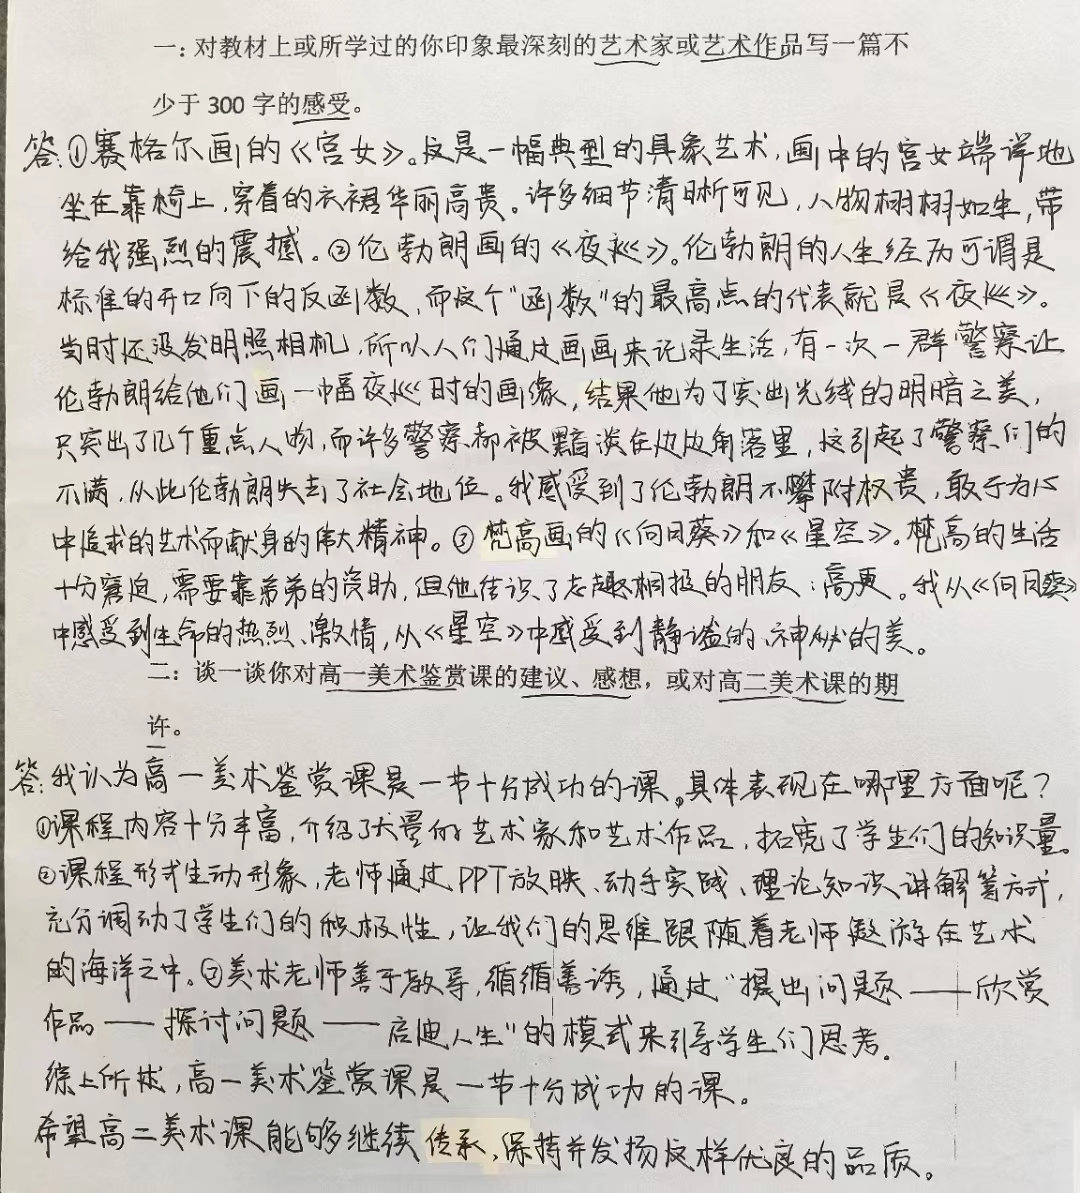 一：对教材上或所学过的你印象最深刻的艺术家或艺术作品写一篇不
少于 300 字的感受。
答：①赛格尔画的《宫女》。这是一幅典型的具象艺术，画中的宫女端详地
坐在靠椅上，穿着的衣裙华丽高贵。许多细节清晰可见，人物栩栩如生，带
给我强烈的震撼。②伦勃朗画的《夜巡》。伦勃朗的人生经历可谓是
标准的开口向下的反函数，而这个“函数”的最高点的代表就是《夜巡》。
当时还没发明照相机，所以人们通过画画来记录生活，有一次一群警察让
伦勃朗给他们画一幅夜巡时的画像，结果他为了突出光线的明暗之美，
只突出了几个重点人物，而许多警察都被黯淡在边边角落里，这引起了警察们的
不满，从此伦勃朗失去了社会地位。我感受到了伦勃朗不攀附权贵，敢于为心
中追求的艺术而献身的伟大精神。③梵高画的《向日葵》和《星空》。梵高的生活
十分窘迫，需要靠弟弟的资助，但他结识了志趣相投的朋友：高更。我从《向日葵》
中感受到生命的热烈、激情，从《星空》中感受到静谧的、神秘的美。
二：谈一谈你对高一美术鉴赏课的建议、感想，或对高二美术课的期
许。
答：我认为高一美术鉴赏课是一节十分成功的课。具体表现在哪里方面呢？
①课程内容十分丰富，介绍了大量的艺术家和艺术作品，拓宽了学生们的知识量。
②课程形式生动形象，老师通过PPT放映、动手实践、理论知识讲解等方式，
充分调动了学生们的积极性，让我们的思维跟随着老师遨游在艺术
的海洋之中。③美术老师善于教导，循循善诱，通过“提出问题——欣赏
作品——探讨问题——启迪人生”的模式来引导学生们思考。
综上所述，高一美术鉴赏课是一节十分成功的课。
希望高二美术课能够继续传承，保持并发扬这样优良的品质。